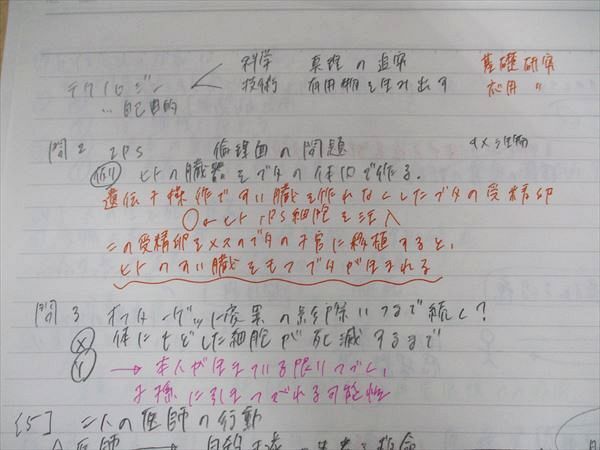 科学 真理の追究 基礎研究
テクノロジー < 技術 有用物を生み出す 応用 〃
… 自己目的
問2 iPS 倫理面の問題
例 ヒトの臓器をブタの体内で作る。
遺伝子操作ですい臓を作れなくしたブタの受精卵
○←ヒトiPS細胞を注入
この受精卵をメスのブタの子宮に移植すると、
ヒトのすい臓をもつブタが生まれる
問3 オフターゲット効果の影響いつまで続く?
X 体にもどした細胞が死滅するまで
Y → 本人が生きている限りつづく、
子孫に引きつがれる可能性
[5] 二人の医師の行動
A医師 →